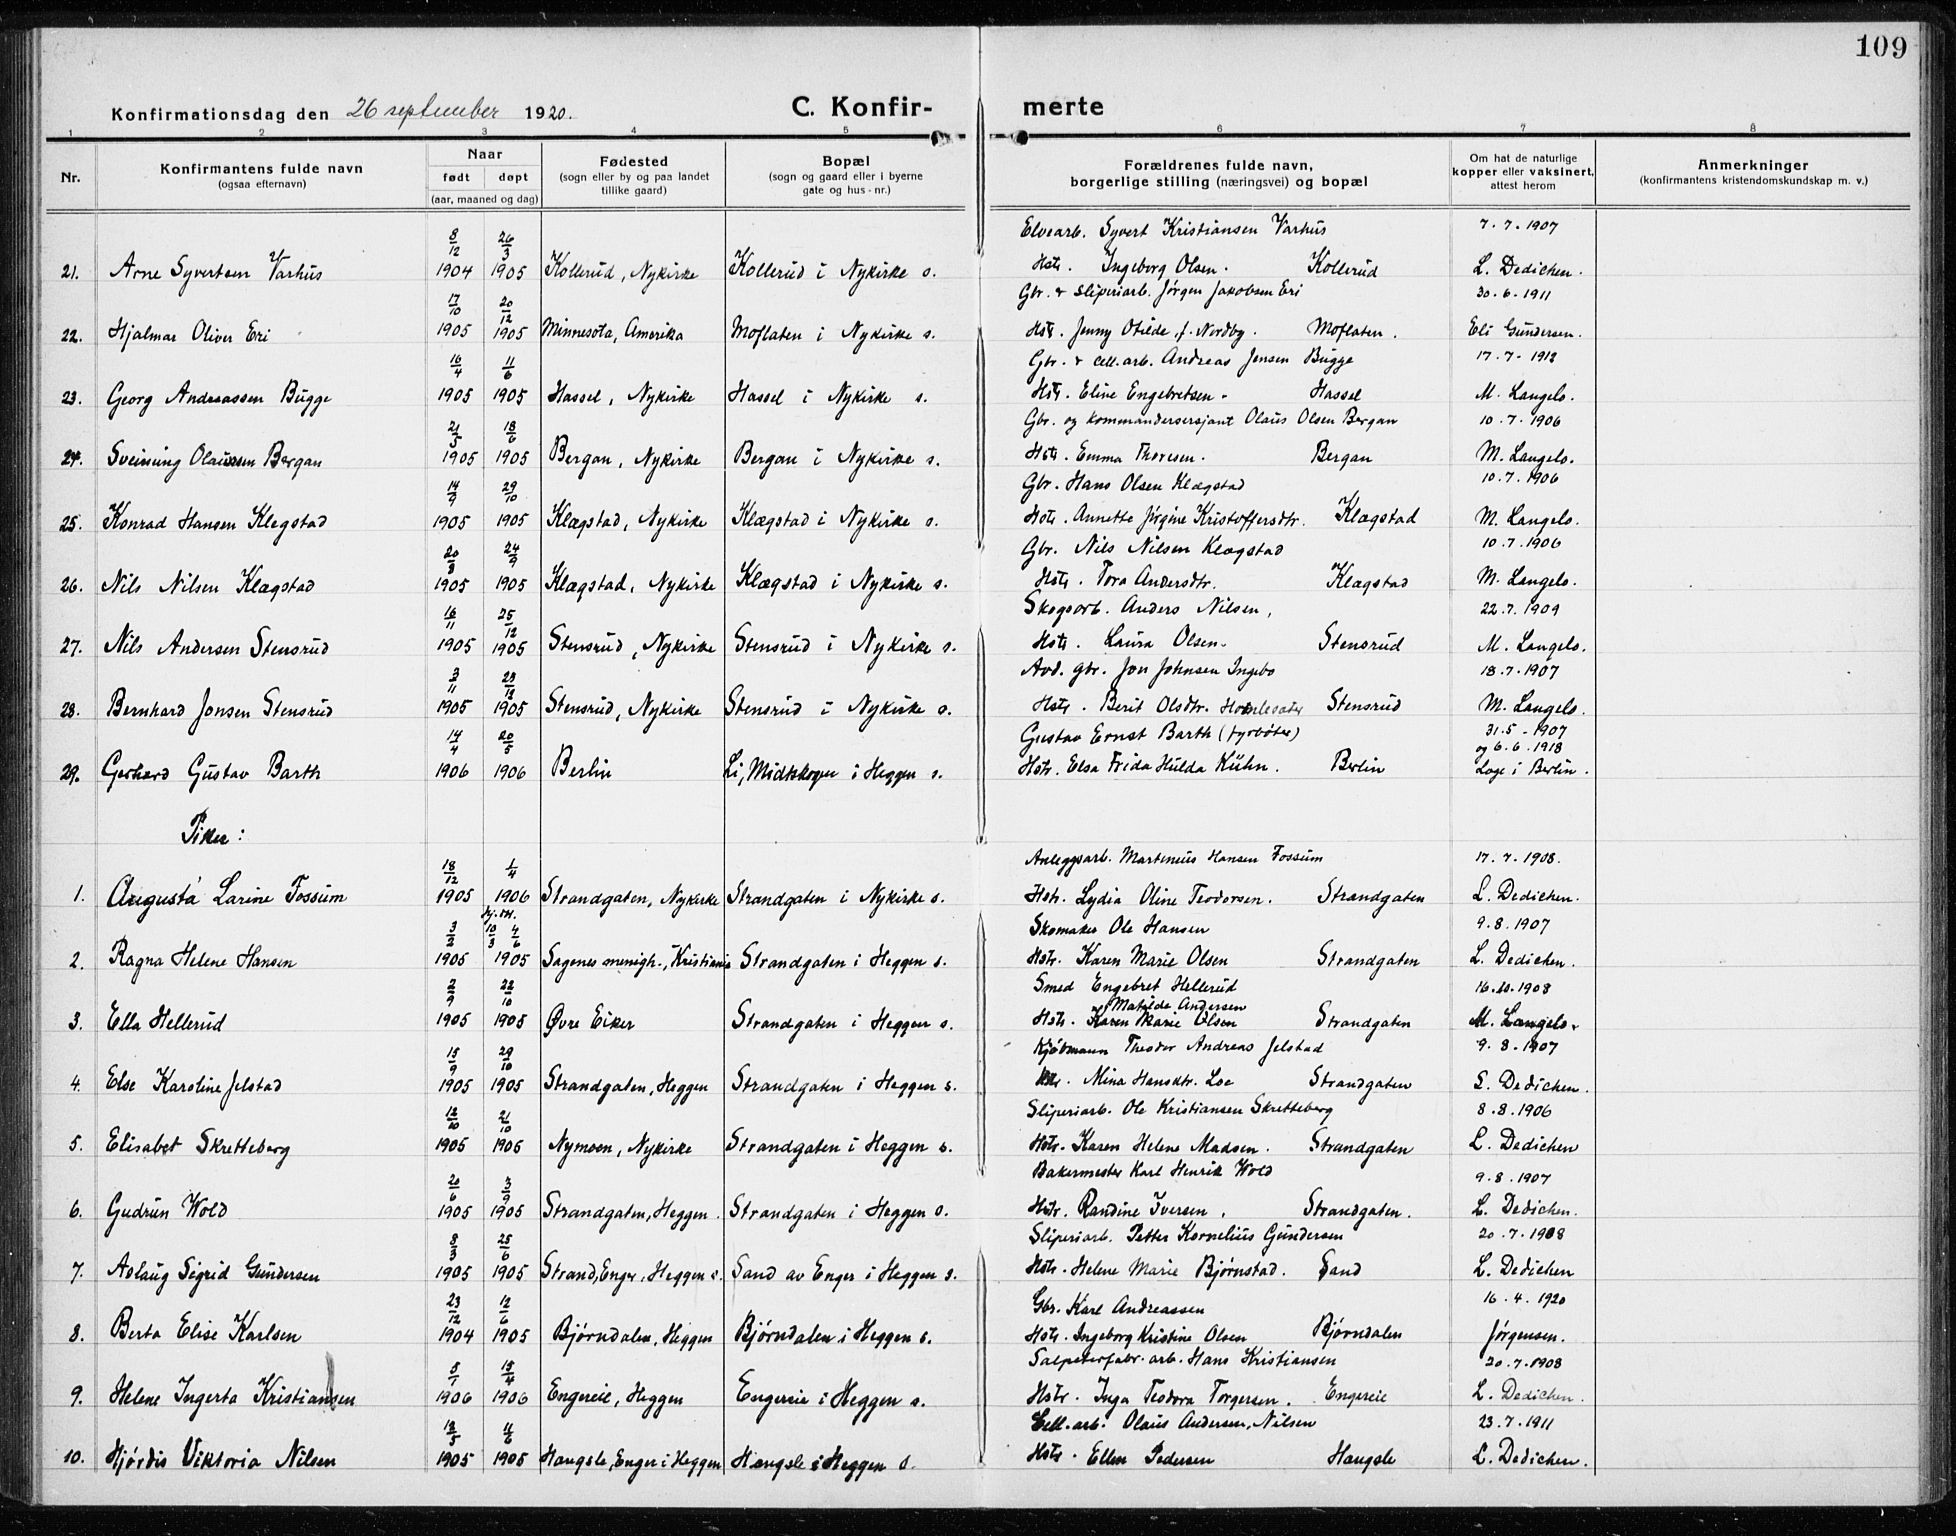 109
Konfirmationsdag den 26 september 1920. C. Konfir- merte
1 2 3 4 5 6 7 8
Nr. Konfirmantens fulde navn (ogsaa efternavn) Naar født døpt (aar, maaned og dag) Fødested (sogn eller by og paa landet tillike gaard) Bopæl (sogn og gaard eller i byerne gate og hus-nr.) Forældrenes fulde navn, borgerlige stilling (næringsvei) og bopæl Om hat de naturlige kopper eller vaksinert, attest herom Anmerkninger (konfirmantens kristendomskundskap m. v.)
8/12 26/3 Elvearb. Syvert Kristiansen Varhus 7.7.1907
21. Arne Syvertsen Varhus 1904 1905 Kollerud, Nykirke Kollerud i Nykirke s. Hstr. Ingeborg Olsen. Kollerud L. Dedichen.
17/10 20/12 Gbr. & Sliperiarb. Jørgen Jakobsen Eri 30.6.1911
22. Hjalmar Oliver Eri 1905 1905 Minnesota, Amerika Moflaten i Nykirke s. Hstr. Jenny Otilde, f. Nordby. Moflaten. Eli Gundersen.
16/4 11/6 Gbr. & cell.arb. Andreas Jensen Bugge 17.7-1912
23. Georg Andreassen Bugge 1905 1905 Hassel, Nykirke Hassel i Nykirke s. Hstr. Eline Engebretsen. Hassel M. Langelo.
21/5 18/6 Gbr. og kommandersersjant Olaus Olsen Bergan 10.7.1906
24. Sveinung Olaussen Bergan 1905 1905 Bergan, Nykirke Bergan i Nykirke s. Hstr. Emma Thoresen. Bergan M. Langelo.
14/9 29/10 Gbr. Hans Olsen Klægstad 10.7.1906
25. Konrad Hansen Klegstad 1905 1905 Klægstad, Nykirke Klægstad i Nykirke s. Hstr. Annette Jørgine Kristoffersdtr. Klægstad M. Langelo.
20/8 24/9 Gbr. Nils Nilsen Klægstad 10.7.1906
26. Nils Nilsen Klægstad 1905 1905 Klægstad, Nykirke Klægstad i Nykirke s. Hstr. Tora Andersdtr. Klægstad M. Langelo.
16/11 25/12 Skogsarb. Anders Nilsen, 22.7.1909
27. Nils Andersen Stensrud 1905 1905 Stensrud, Nykirke Stensrud i Nykirke s. Hstr. Laura Olsen. Stensrud M. Langelo.
3/11 23/12 Avd. gbr. Jon Johnsen Ingebo 18.7.1907
28. Bernhard Jonsen Stensrud 1905 1905 Stensrud, Nykirke Stensrud i Nykirke s. Hstr. Berit Olsdtr. Stensrud M. Langelo.
14/4 20/5 Gustav Ernst Barth (fyrbøter) 31.5-1907
og 6.6.1918
29. Gerhard Gustav Barth 1906 1906 Berlin Li, Midtskogen i Heggen s. Hstr. Elsa Frida Hulda Kühn. Berlin Læge i Berlin.
Piker:
18/12 1/4 Anleggsarb. Martinius Hansen Fossum 17.7.1908.
1. Augusta Larine Fossum 1905 1906 Strandgaten, Nykirke Strandgaten i Nykirke s. Hstr. Lydia Oline Teodorsen. Strandgaten L. Dedichen.
3/2 10/3 4/6 Skomaker Ole Hansen 9.8.1907
2. Ragna Helene Hansen 1905 1905 Sagenes menigh., Kristiania Strandgaten i Heggen s. Hstr. Karen Marie Olsen Strandgaten L. Dedichen.
2/9 22/10 Smed Engebret Hellerud 16.10.1908
Matilde Andersen
3. Ella Hellerud 1905 1905 Øvre Eiker Strandgaten i Heggen s. Hstr. Karen Marie Olsen Strandgaten M. Langelo.
15/9 29/10 Kjøbmann Theodor Andreas Jelstad 9.8.1907
4. Else Karoline Jelstad 1905 1905 Strandgaten, Heggen Strandgaten i Heggen s. Hstr. Mina Hansdtr. Loe Strandgaten L. Dedichen.
12/10 21/10 Sliperiarb. Ole Kristiansen Skretteberg 8.8.1906
5. Elisabet Skretteberg 1905 1905 Nymoen, Nykirke Strandgaten i Heggen s. Hstr. Karen Helene Madsen. Strandgaten L. Dedichen
20/6 3/9 Bakermester Karl Henrik Wold 9.8.1907
6. Gudrun Wold 1905 1905 Strandgaten, Heggen. Strandgaten i Heggen s. Hstr. Randine Iversen. Strandgaten. L. Dedichen.
8/3 25/6 Sliperiarb. Petter Kornelius Gundersen 20.7.1908
7. Aslaug Sigrid Gundersen 1905 1905 Strand, Enger, Heggen s. Sand av Enger i Heggen s. Hstr. Helene Marie Bjørnstad. Sand L. Dedichen
23/12 12/6 Gbr. Karl Andreassen 16.4.1920
8. Berta Elise Karlsen 1904 1905 Bjørndalen, Heggen Bjørndalen i Heggen s. Hstr. Ingeborg Kristine Olsen Bjørndalen Jørgensen.
5/1 15/4 Salpeterfabr.arb. Hans Kristiansen 20.7.1908
9. Helene Ingerta Kristiansen 1906 1906 Engereie, Heggen Engereie i Heggen s. Hstr. Inga Teodora Torgersen. Engereie L. Dedichen.
13/5 11/6 Cell.arb. Olaus Andersen, Nilsen 23.7.1911
10. Hjørdis Viktoria Nilsen 1905 1905 Haugsle, Enger i Heggen Haugsle i Heggen s. Hstr. Ellen Pedersen Haugsle L. Dedichen.